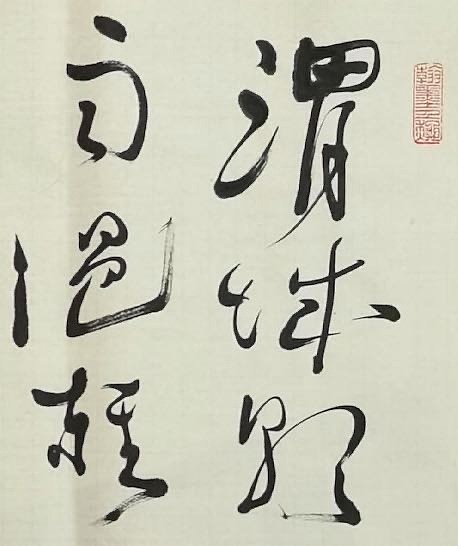 渭城朝
雨浥輕